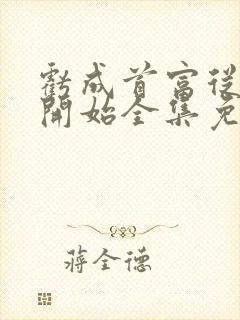 虧成首富從
開始全集免
蔣全德